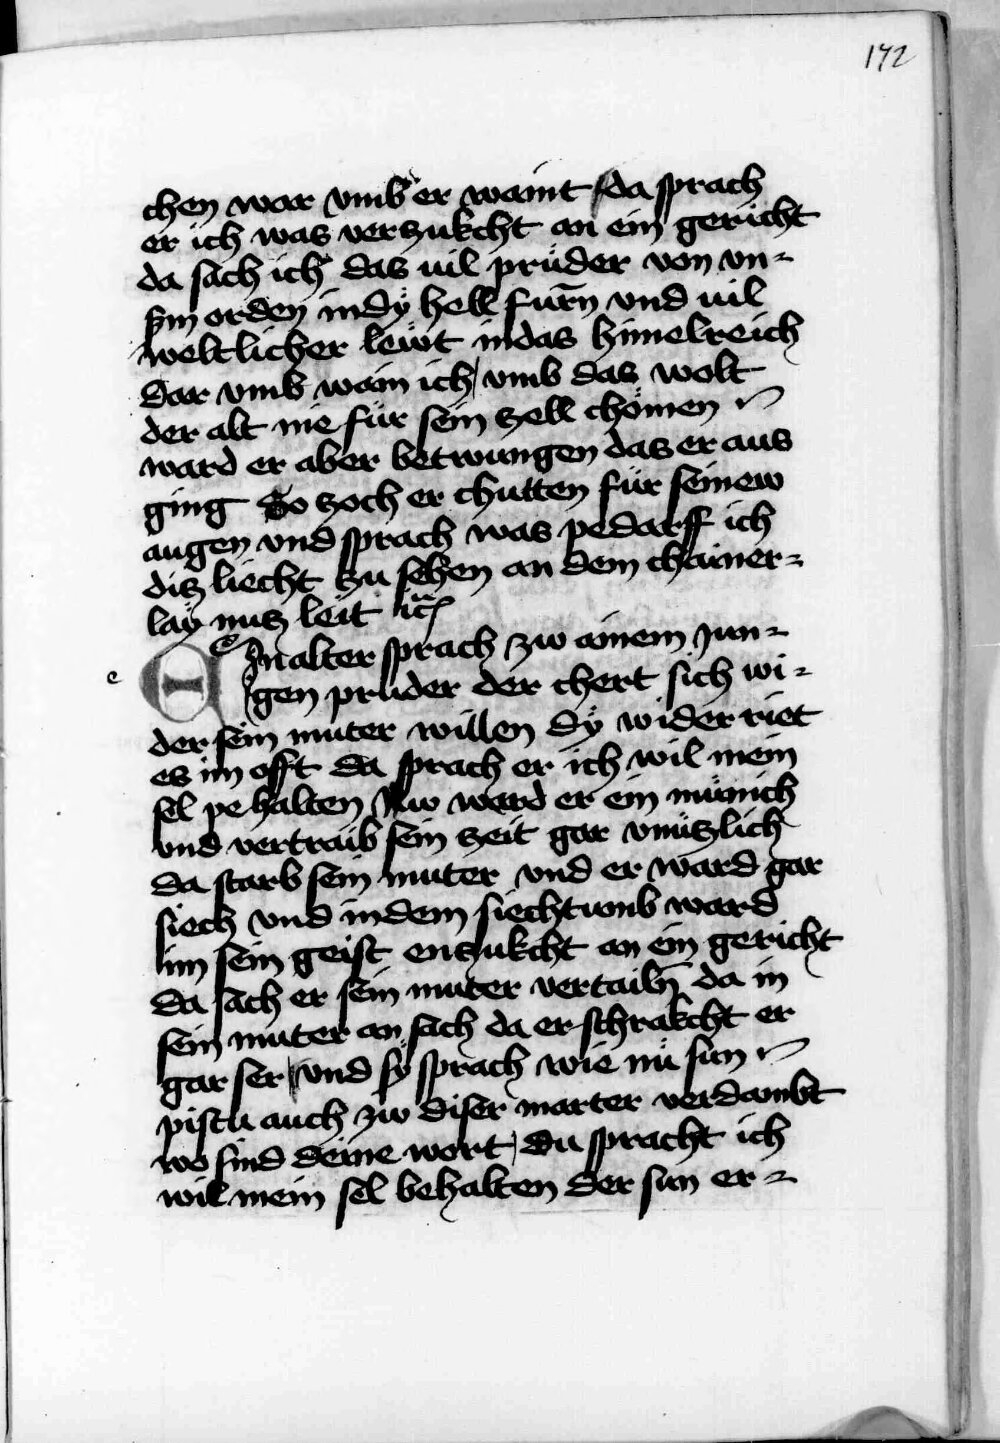 172
chen war vmb er waint / da sprach
er ich was verzukcht an ein gericht
da sach ich das uil prüder von vn-
serm orden in dÿ hell furn̄ vnd uil
weltlicher lewt in das himelreich
Dar vmb wain ich / vmb das wolt
der alt nie für sein zell chömen
ward er aber betwungen das er aus
ging So zoch er chutten für seinew
augen vnd sprach was pedarff ich
diz liecht zu sehen an dem chainer-
laÿ nuz leit
e
Ein alter sprach zw ainem Jun-
gen prüder der chert sich wi-
der sein muter willen dÿ wider riet
es im offt da sprach er ich wil mein
sel pe halten Nw ward er ein münich
vnd vertraib sein zeit gar vnüzlich
da starb sein muter vnd er ward gar
siech vnd in dem siechtumb ward
im sein geist enzukcht an ein gericht
Da sach er sein muter vertailn̄ da in
sein muter an sach da erschrakcht er
gar ser / vnd sÿ sprach wie nü sun
pistu auch zw diser marter verdambt
wo sind deine wort / Du spracht ich
wil mein sel behalten Der sun er-